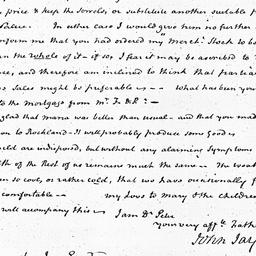 price & keep the Sorrels, or substitute another suitable
Value. In either case I would give him no further
inform me that you had ordered my "Merch: Stock to be
than the whole of it – if so, I fear it may be ascribed to
and therefore am inclined to think that partial
Sales might be preferable is -- What has been your
to the Mortgage from Mr.
glad that mama was better than usual – and that you made
to Rockland – It will probably produce some Good
are indisposed, but without any alarming Symptoms
of the Rest of us remains much the same -- The weat
so cool, or rather cold, that we have occasionally
comfortable -- my Love to Mary & the Children
will accompany this – I am Dr Peter
your very affte. Fath
John Jay